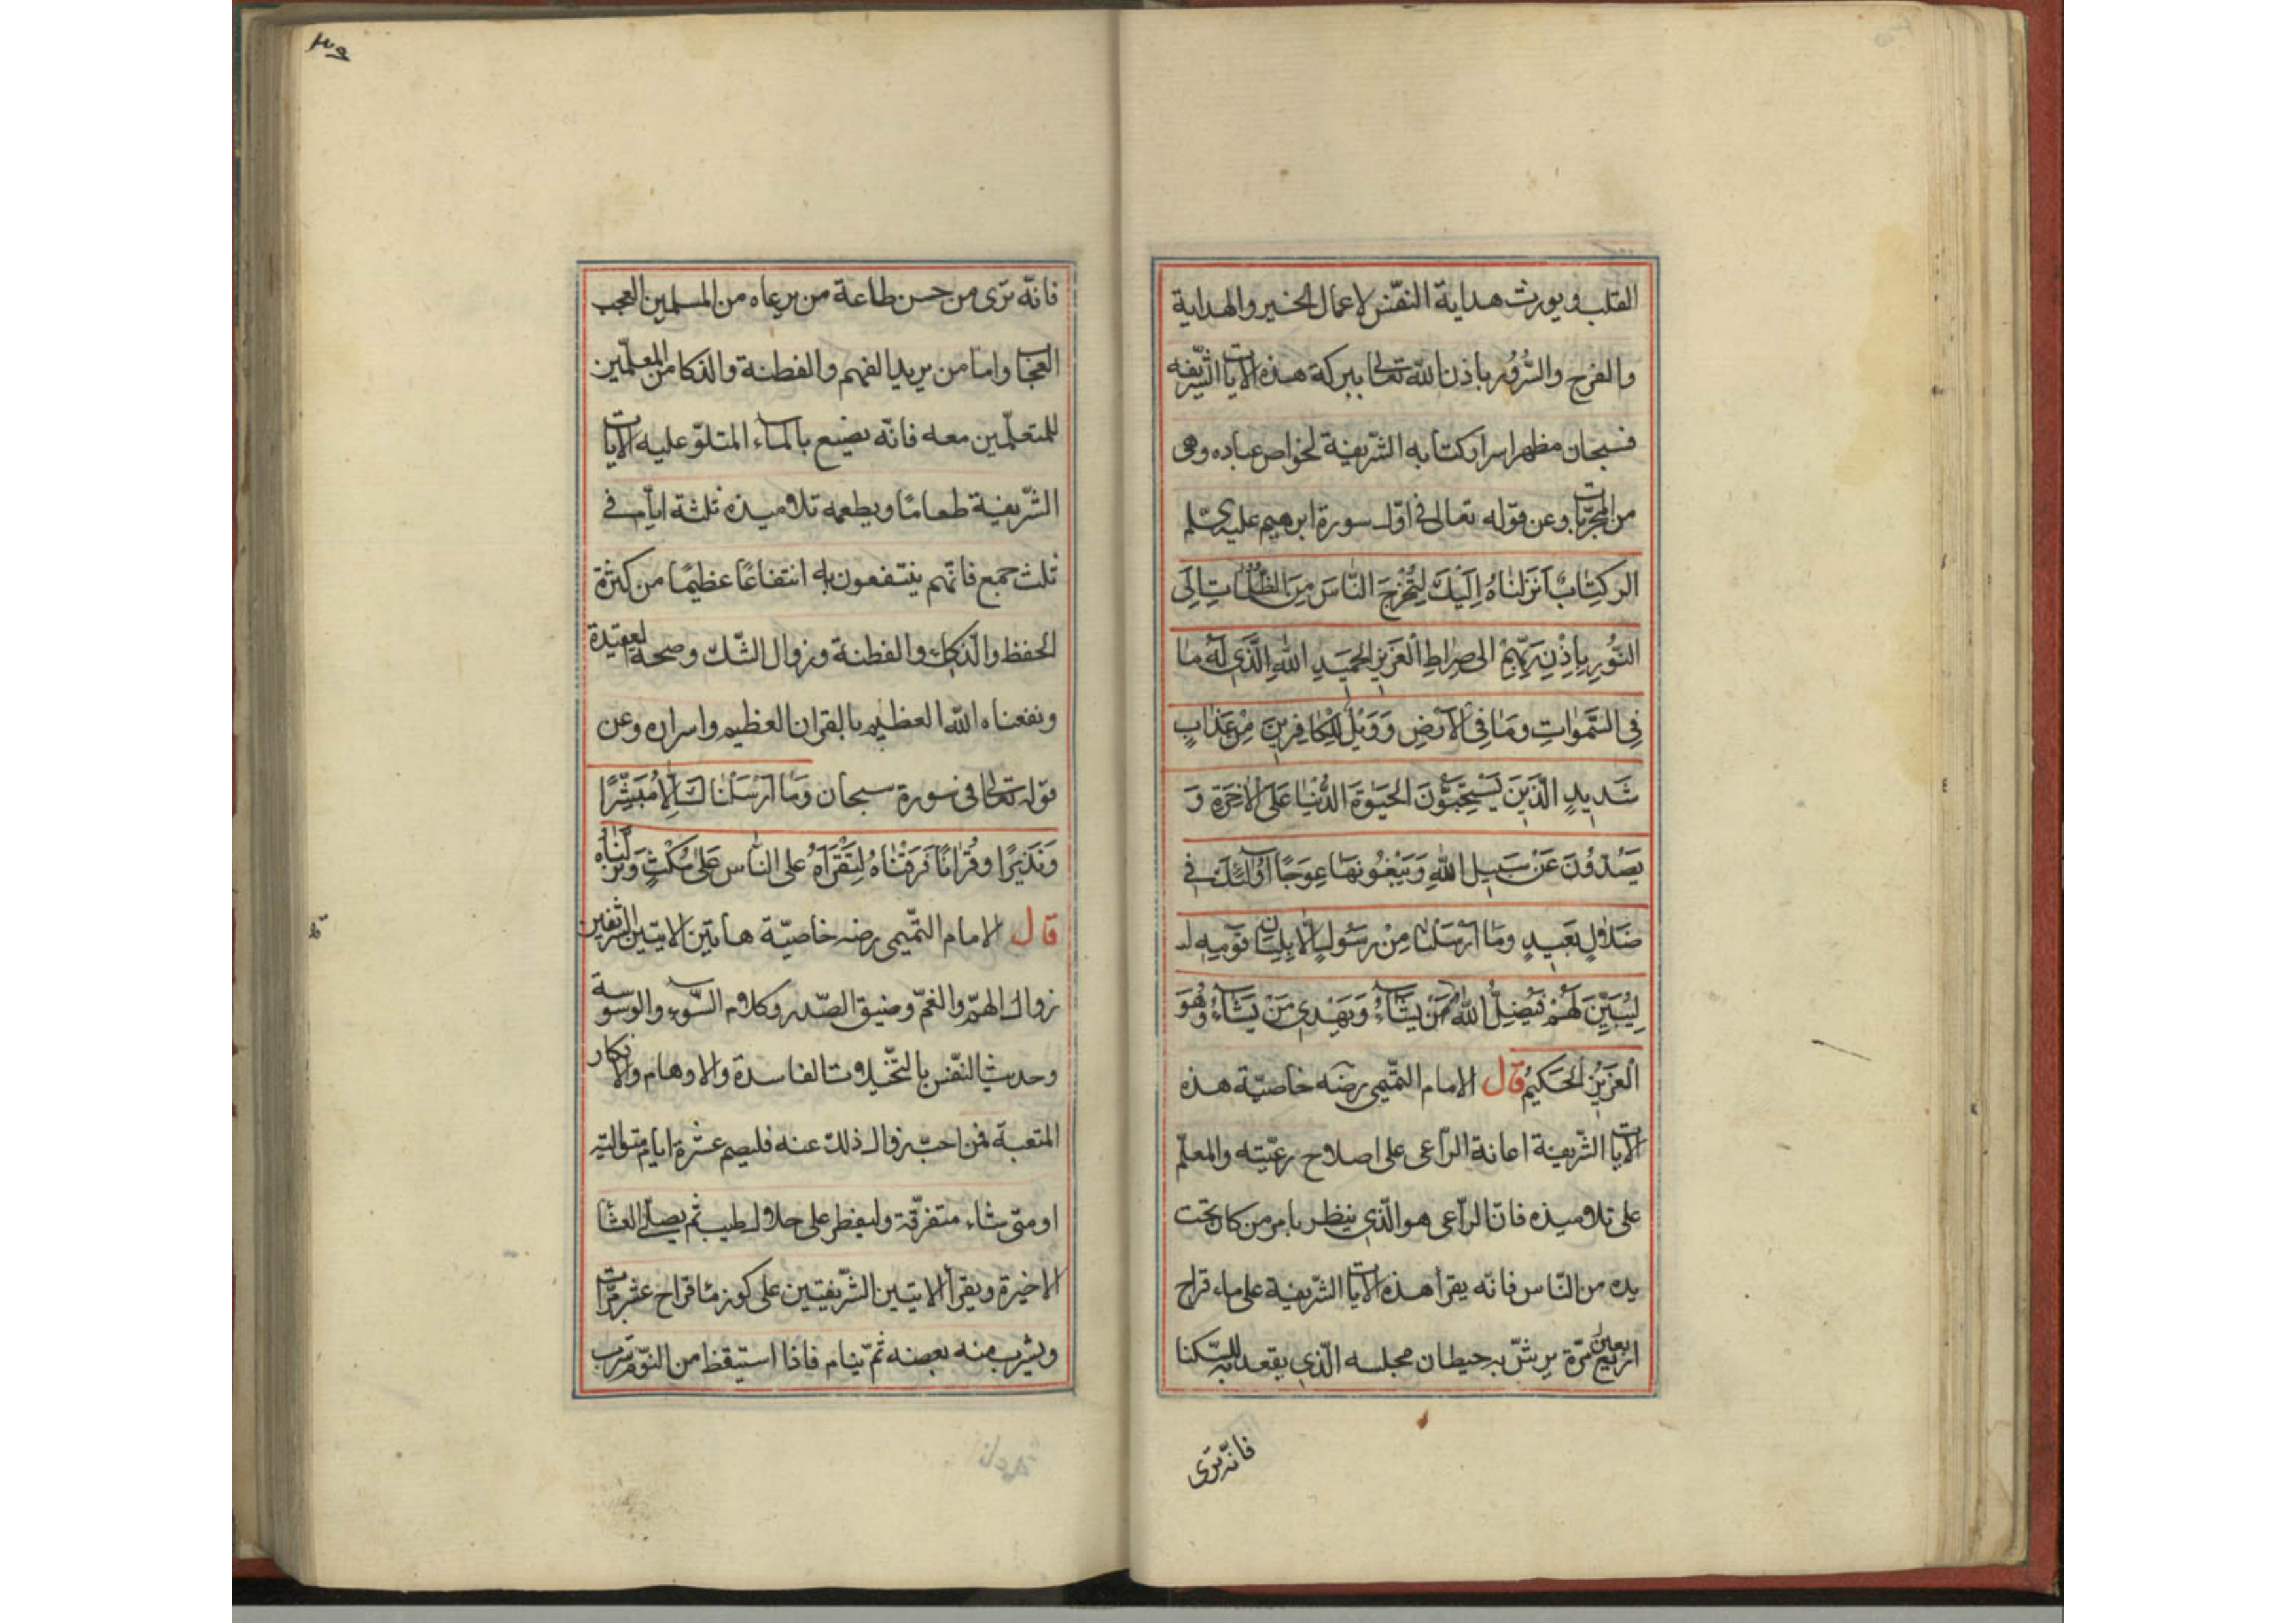 القلب ويورث هداية النفس لاعمال الخير والهداية
والفرح والسُّرُور باذن اللّه تعالى ببركة هذه الايات الشّريفه
فسبحان مظهر اسرار كتابه الشّريفة لخواص عباده وهى
من المجرّبات وعن قوله تعالى فى اوّل سورة ابرهيم عليه
الر كِتٰابٌ اَنزَلنٰاهُ اِلَيْكَ لِتُخْرِجَ النّٰاسَ مِنَ الظُّلُمٰاتِ اِلَى
النُّورِ بِاِذْنِ رَبِّهِمْ الى صِراطِ الْعَزيزِ الحَميدِ اللّٰهِ الَّذى لَهُ مٰا
فِى السَّمٰوٰاتِ وَمٰا فِى الْاَرضِ وَوَيْلٌ لِلْكٰافِرينَ مِنْ عَذٰابٍ
شَديدٍ الَّذينَ يَسْتَحِبُّونَ الحَيٰوةَ الدُّنْيٰا عَلَى الْاٰخِرَةِ وَ
يَصُدّونَ عَنْ سَبيلِ اللّٰهِ وَيَبْغُونَهٰا عِوَجًا اُولٰئِكَ فى
ضَلٰالٍ بَعيدٍ وَمٰا اَرْسَلْنٰا مِنْ رَسُولٍ اِلّٰا بِلِسٰانِ قَوْمِهِ
لِيُبَيِّنَ لَهُمْ فَيُضِلُّ اللّٰهُ مَنْ يَشٰاءُ وَيَهْدى مَنْ يَشٰاءُ وَهُوَ
الْعَزيزُ الحَكيمُ قال الامام التّميمى رضه خاصيّة هذه
الايات الشّريفة اعانة الرّاعى على اصلاح رعيّته والمعلّم
على تلاميذه فانّ الرّاعى هو الّذى ينظر بامر من كان تحت
يده من النّاس فانّه يقرأ هذه الايات الشّريفة على ماء قراح
اربعين مرّة يرشّ به حيطان مجلسه الّذى يقعد به للسّكنا
فانّه ترى
فانّه ترى من حسن طاعة من يرعاه من المسلمين العجب
العجاب وامّا من يريد الفهم والفطنة والذكا من المعلّمين
للمتعلّمين معه فانّه يصنع بالماء المتلوّ عليه الايات
الشّريفة طعامًا ويطعمه تلاميذه ثلثة ايّام فى
ثلث جمع فانّهم ينتفعون به انتفاعًا عظيمًا من كثرة
الحفظ والذكاء والفطنة وزوال الشّك وصحة العقيدة
ونفعنا اللّه العظيم بالقران العظيم واسراره وعن
قوله تعالى فى سورة سبحان وَمٰا اَرْسَلْنٰاكَ اِلّٰا مُبَشِّرًا
وَنَذيرًا وقُرْاٰنًا فَرَقْنٰاهُ لِتَقْرَاَهُ على النّٰاس عَلٰى مُكْثٍ وَنَزَّلْنٰاه
قال الامام التّميمى رضه خاصيّة هاتين الايتين الشريفتين
زوال الهمّ والغمّ وضيق الصّدر وكلام السّوء والوسوسة
وحديث النّفس بالتّخيلات الفاسدة والاوهام والافكار
المتعبة فمن احبّ زوال ذلك عنه فليصم عشرة ايام متوالية
او متى شاء متفرّقة وليفطر على حلال طيب ثم يصلّى العشا
الاخيرة ويقرأ الايتين الشّريفتين على كوز ماء قراح عشر مرّات
ويشرب منه بعضه ثمّ ينام فاذا استيقظ من النّوم شرب